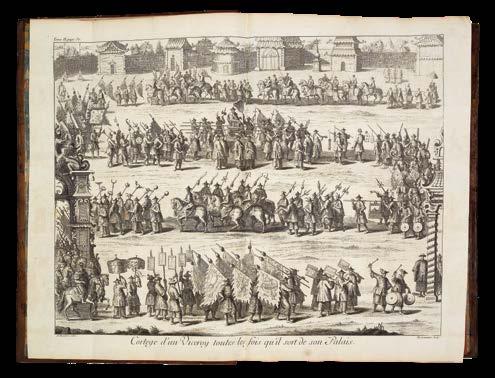 Cortege d'un Viceroy toutes les fois qu'il sort de son Palais.